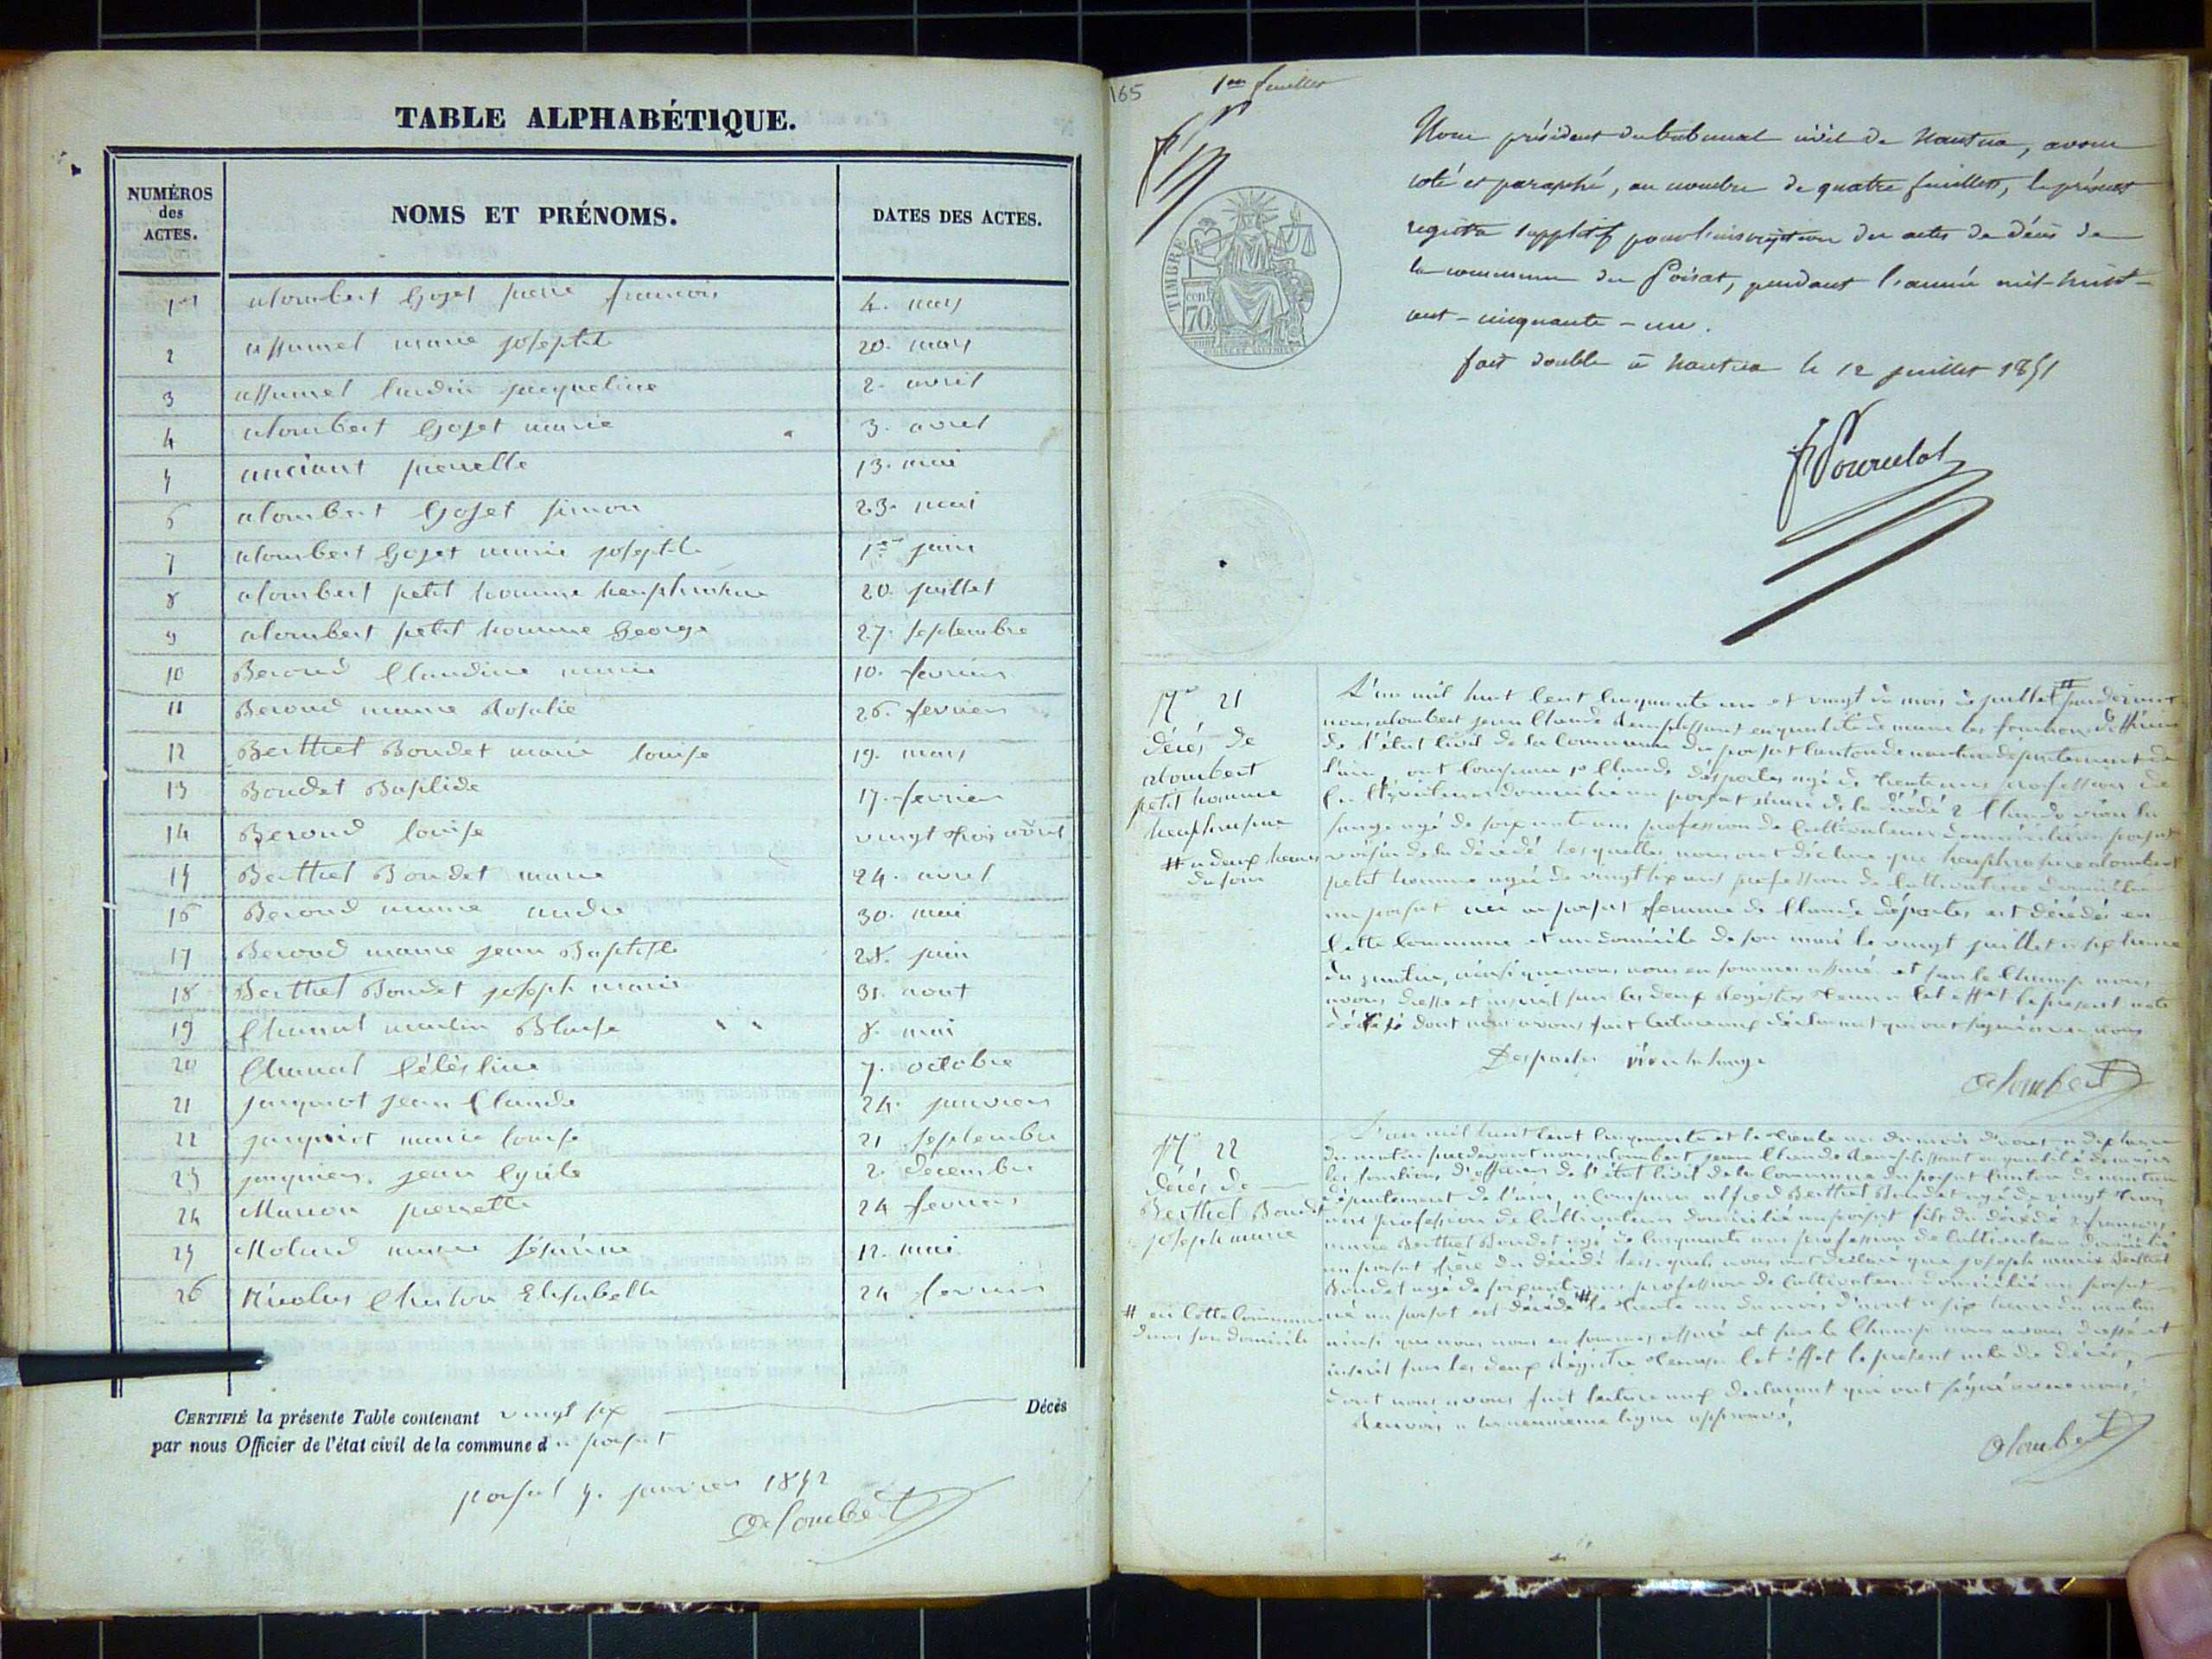 TABLE ALPHABÉTIQUE.
NUMÉROS des ACTES. NOMS ET PRÉNOMS. DATES DES ACTES.
1er alombert Gozet pierre francois 4. mars
2 assumel marie josephte 20. mars
3 assumel lurdin jacqueline 2. avril
4 alombert Gozet marie 3. avril
5 anciant pierrette 13. mai
6 alombert Gozet simon 23. mai
7 alombert Gozet marie josephte 1er juin
8 alombert petit homme heuphrosine 20. juillet
9 alombert petit homme George 27. septembre
10 Beroud Claudine marie 10. fevrier
11 Beroud marie Rosalie 26. fevrier
12 Berthet Bondet marie louise 19. mars
13 Bondet Basilide 17. fevrier
14 Beroud louise vingt trois avril
15 Berthet Bondet marie 24. avril
16 Beroud marie andre 30. mai
17 Beroud marie jean Baptiste 28. juin
18 Berthet Bondet joseph marie 31. aout
19 Chanal martin Blaise 8. mai
20 Chanal Célèstine 7. octobre
21 jacquiot jean Claude 24. janvier
22 jacquiot marie louise 21 septembre
23 jacquier jean Cyrile 2. decembre
24 Marion pierrette 24 fevrier
25 Molard marie 12. mai
26 Nicolas Charlon Elisabette 24 fevrier
CERTIFIÉ la présente Table contenant vingt six Décès
par nous Officier de l'état civil de la commune du poizat
poizat 5. janvier 1852
Alombert
165 1er feuillet
Nous président du tribunal civil de Nantua, avons
coté et paraphé, au nombre de quatre feuillets, le présent
registre supplétif pour l'inscription des actes de décès de
la commune du Poisat, pendant l'année mil-huit-
cent-cinquante-un.
fait double à Nantua le 12 juillet 1851
TIMBRE
70 cent
No 21
décès de
alombert
petit homme
heuphrosine
# a deux heures
du soir
L'an mil huit Cent Cinquante un et vingt du mois de juillet # pardevant
nous alombert jean Claude Remplissant en qualité de maire les fonctions d'officier
de l'état Civil de la Commune du poizat Canton de nantua departement de
l'ain, ont Comparu 1o Claude désportes agé de trente ans profession de
Cultivateur domicilié au poizat mari de la décédé 2 Claude
agé de soixante ans profession de Cultivateur domicilié au poizat
voisin de la décédé lesquelles nous ont déclaré que heuphrosine alombert
petit homme agée de vingt six ans profession de Cultivatrice domiciliée
au poizat née au poizat femme de Claude déportes est décédée en
Cette Commune et au domicile de son mari le vingt juillet a six heures
du matin, ainsi que nous nous en sommes assuré et sur le Champ nous
avons dressé et inscrit sur les deux Registres tenu a Cet effet le present acte
de décès dont nous avons fait lecture aux déclarant qui ont signé avec nous
Desportes
Alombert
No 22
décés de
Berthet Bondet
joseph marie
# en Cette Commune
dans son domicile
L'an mil huit Cent Cinquante et le trente un du mois d'aout a dix heures
du matin pardevant nous alombert jean Claude Remplissant en qualité de maire
les fonctions d'officier de l'état Civil de la Commune du poizat Canton de nantua
département de l'ain, a Comparu alfred Berthet Bondet agé de vingt trois
ans profession de Cultivateur domicilié au poizat fils du décédé 2 francois
marie Berthet Bondet agé de Cinquante ans profession de Cultivateur domicilié
au poizat frère du décédé lesquels nous ont déclaré que joseph marie Berthet
Bondet agé de soixante ans profession de Cultivateur domicilié au poizat
né au poizat est décédé # le trente un du mois d'aout a six heures du matin
ainsi que nous nous en sommes assuré et sur le Champ nous avons dressé et
inscrit sur les deux Régistre tenu a Cet éffet le present acte de décès,
dont nous avons fait lecture aux declarant qui ont signé avec nous,
Renvois a la neuvieme ligne approuvé,
Alombert